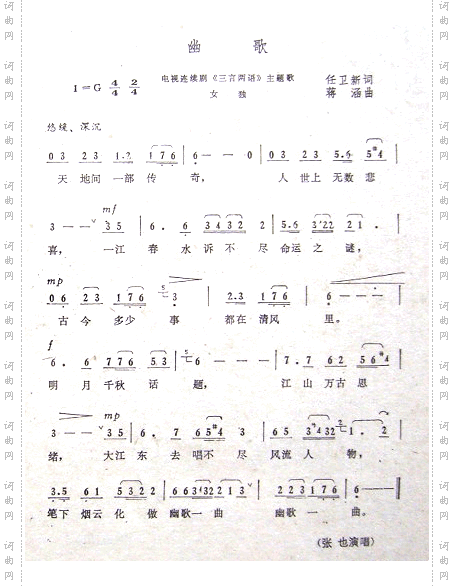 幽 歌
1=G 4/4 2/4 电视连续剧《三言两语》主题歌 任卫新词
女 独 蒋 涵曲
悠缓、深沉
03 23 1.2 176 | 6 — — 0 | 03 23 5.6 5#4 |
天 地间 一部 传 奇， 人 世上 无数 悲
mf
3 — — 35 | 6. 6 3432 2 | 5.6 3'22 21. |
喜， 一江 春 水 诉 不 尽 命运 之 谜，
mp
06 23 176 5 3 | 2.3 176 | 6 — — — |
古 今 多少 事 都在 清风 里。
f
6. 6 7 76 53 | 5 6 — — — | 7.7 62 56#4 |
明 月 千秋 话 题， 江山 万古 思
mp
3 — — 35 | 6. 7 65#4 3 | 65 3#432 2 1. 2 |
绪， 大江 东 去 唱 不 尽 风流 人 物，
3.5 61 5322 2 | 663#432213 | 223176 | 6 — — — |
笔下 烟云 化 做 幽歌 一 曲 幽歌 一 曲。
（张 也演唱）
词曲网
词曲网
词曲网
词曲网
词曲网
词曲网
词曲网
词曲网
词曲网
词曲网